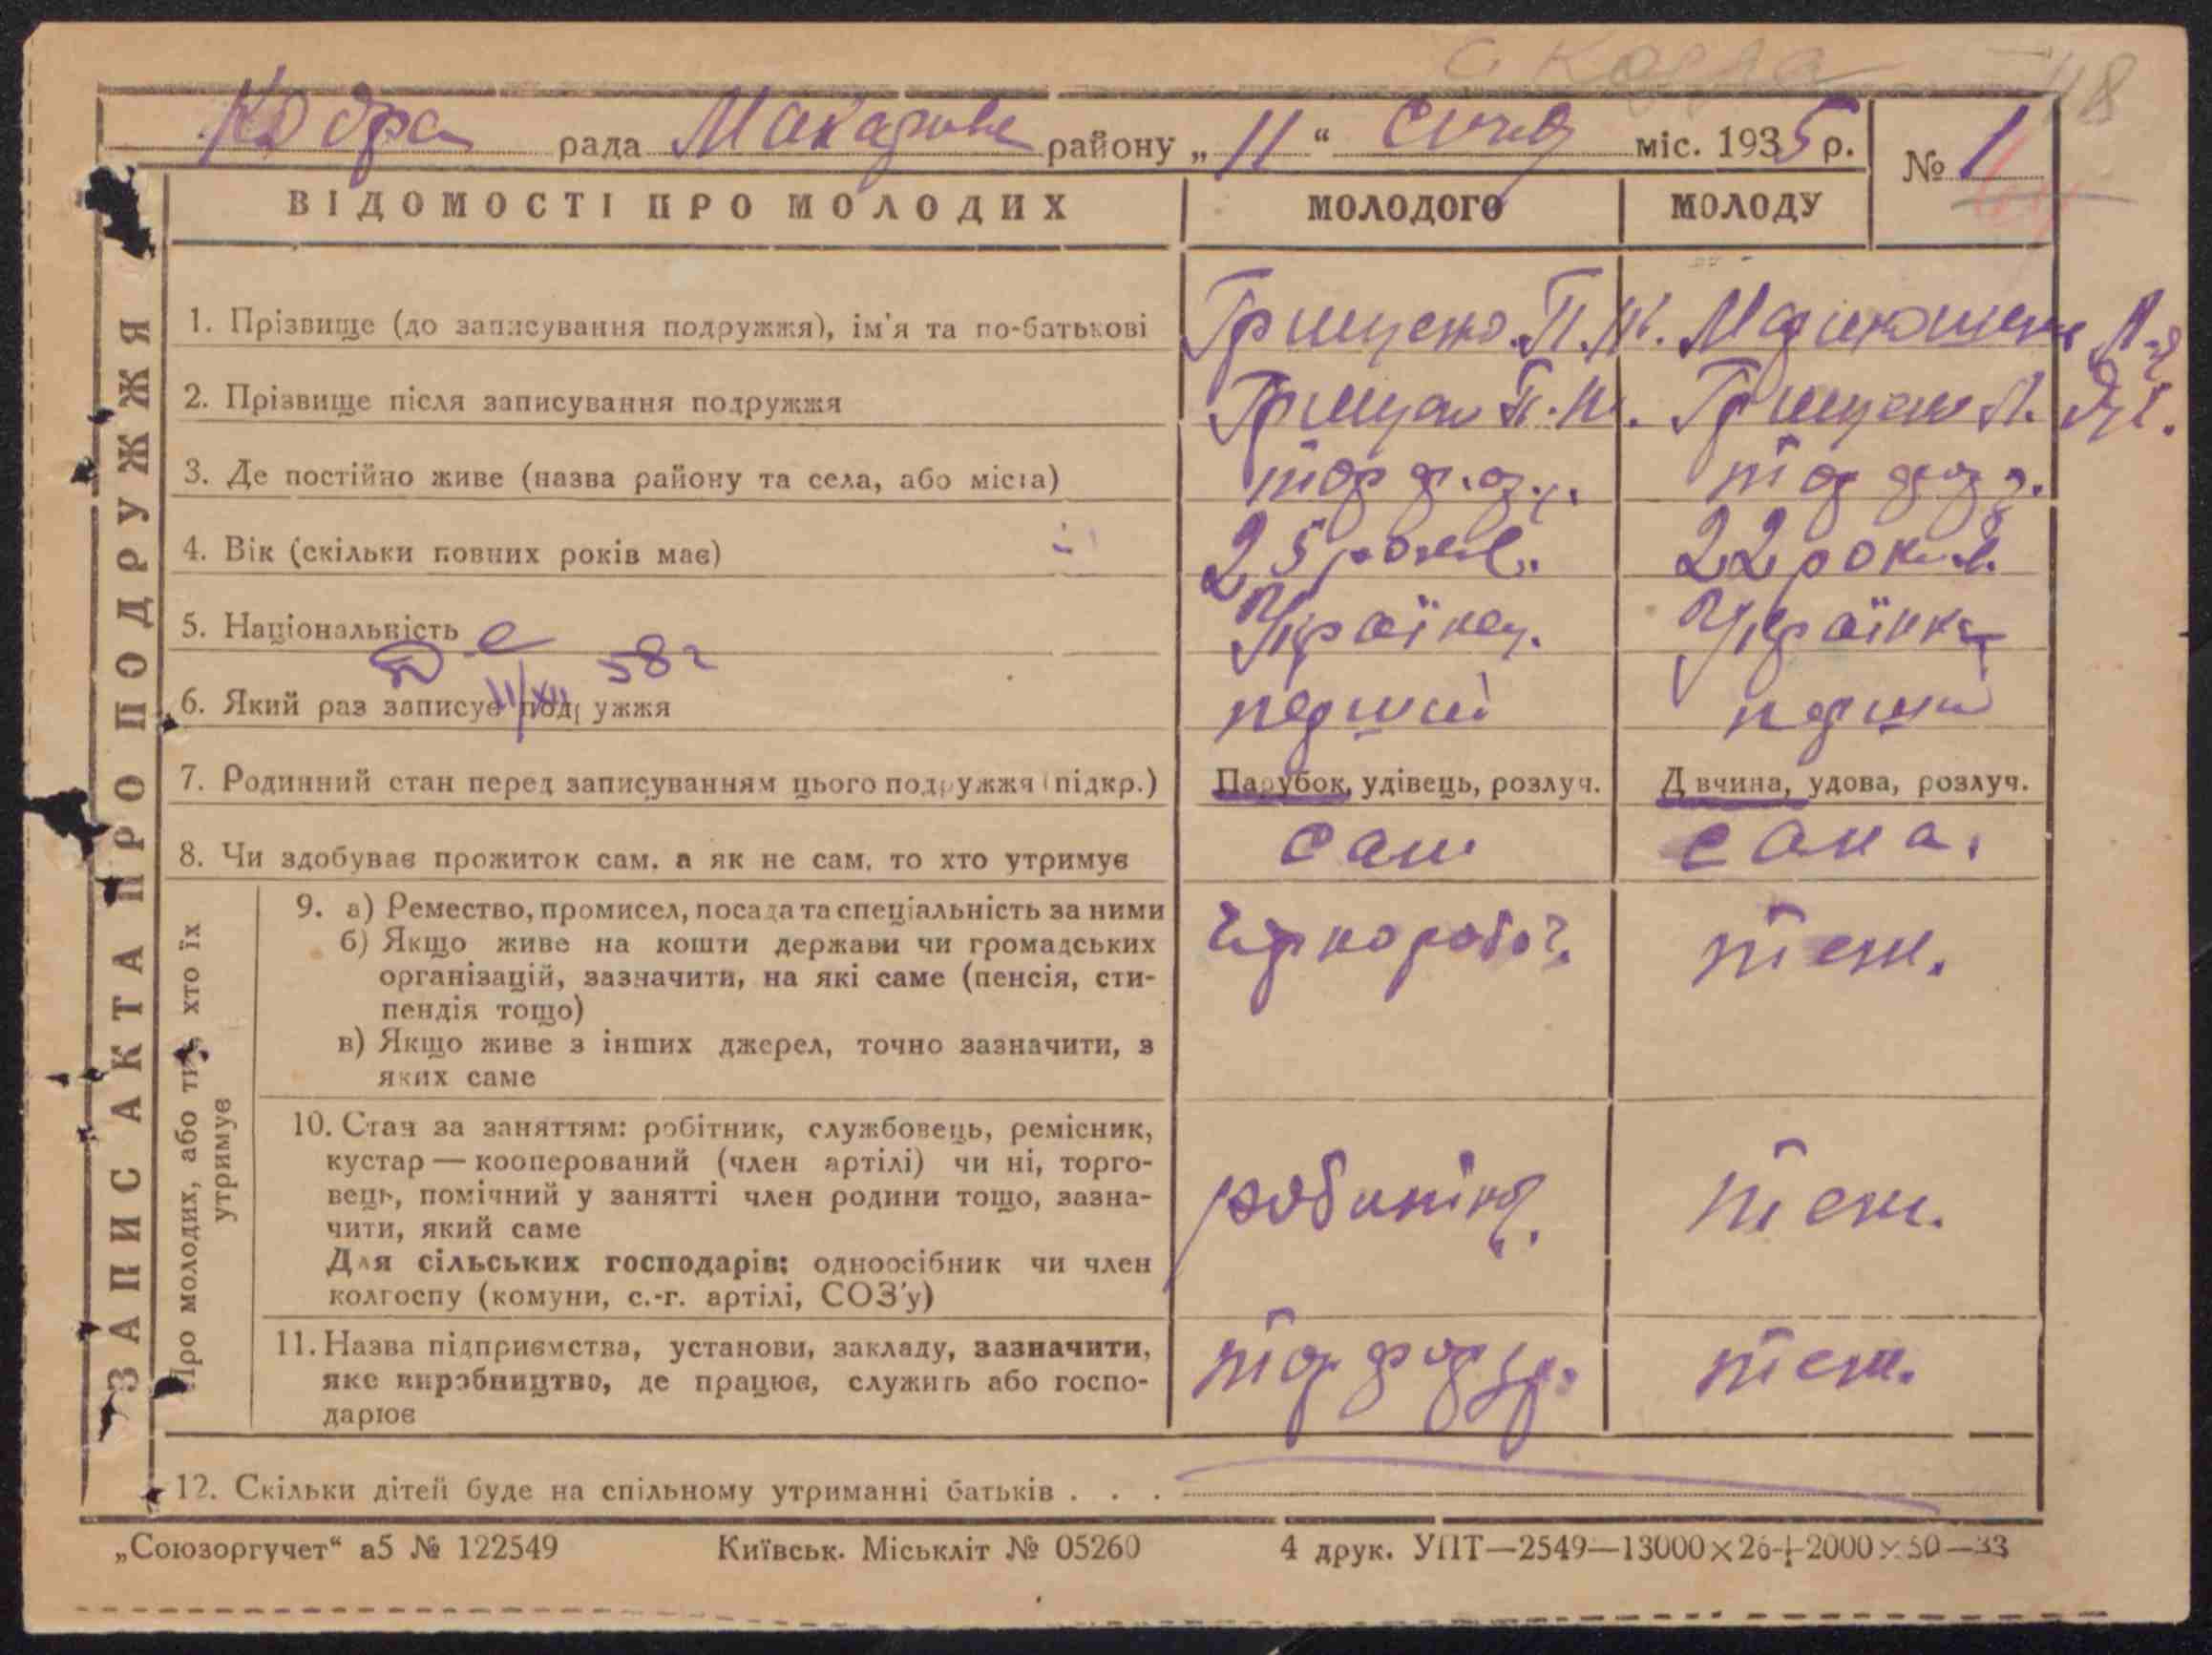 с. Кодра 48
Кодра рада Макарове району „11“ січня міс. 1935 р. № 1
ВІДОМОСТІ ПРО МОЛОДИХ МОЛОДОГО МОЛОДУ
ЗАПИС АКТА ПРО ПОДРУЖЖЯ
1. Прізвище (до записування подружжя), ім'я та по-батькові Грищенко П. М.
2. Прізвище після записування подружжя Грищен П. М. Грищен Л.
3. Де постійно живе (назва району та села, або міста)
4. Вік (скільки повних років має) 25 років. 22 років.
5. Національність Українец. Українка
58 г
11/XII
6. Який раз записує подружжя перший перший
7. Родинний стан перед записуванням цього подружжя (підкр.) Парубок, удівець, розлуч. Дівчина, удова, розлуч.
8. Чи здобуває прожиток сам, а як не сам, то хто утримує сам сама.
Про молодих, або тих хто їх утримує
9. а) Ремество, промисел, посада та спеціальність за ними чорнороboч. теж.
б) Якщо живе на кошти держави чи громадських
організацій, зазначити, на які саме (пенсія, сти-
пендія тощо)
в) Якщо живе з інших джерел, точно зазначити, з
яких саме
10. Стан за заняттям: робітник, службовець, ремісник,
кустар — кооперований (член артілі) чи ні, торго-
вець, помічний у занятті член родини тощо, зазна-
чити, який саме робитнік. теж.
Для сільських господарів: одноосібник чи член
колгоспу (комуни, с.-г. артілі, СОЗ'у)
11. Назва підприємства, установи, закладу, зазначити,
яке виробництво, де працює, служить або госпо- теж.
дарює
12. Скільки дітей буде на спільному утриманні батьків . . .
„Союзоргучет“ а5 № 122549 Київськ. Міськліт № 05260 4 друк. УПТ—2549—13000×26+2000×50—33